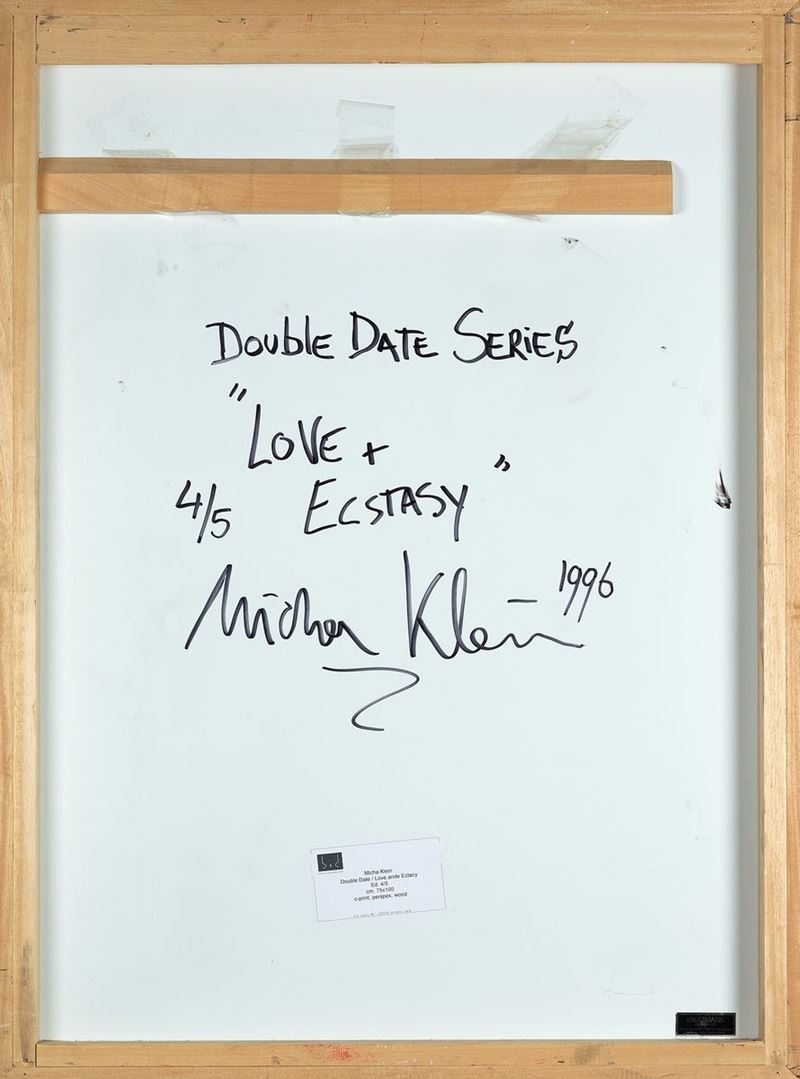 DOUBLE DATE SERIES
"LOVE +
4/5 ECSTASY"
Micha Klein - 1996
b+d
Micha Klein
Double Date / Love ande Ectacy
Ed. 4/5
cm. 75x100
c-print, perspex, wood